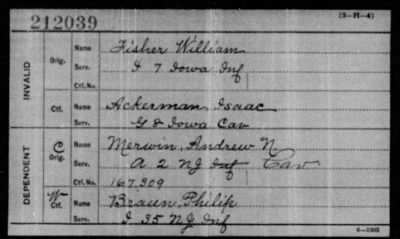 212039
(3-H-4)
INVALID
Orig.
Name Fisher William
Serv. I 7 Iowa Inf
Ctf. No.
Ctf.
Name Ackerman, Isaac
Serv. G 8 Iowa Cav
DEPENDENT
C
Orig.
Name Merwin, Andrew N.
Serv. A 2 NJ Inf Cav
Ctf. No. 167,309
W
Ctf.
Name Braun, Philip
Serv. I 35 NJ Inf